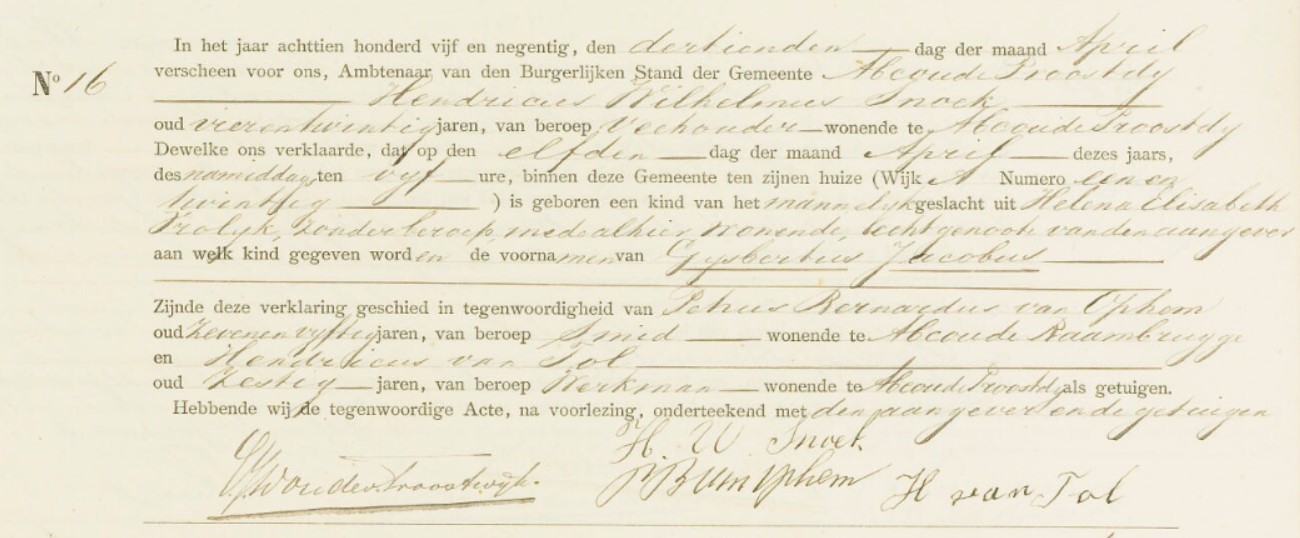 In het jaar achttien honderd vijf en negentig, den dertienden dag der maand April
No 16
verscheen voor ons, Ambtenaar van den Burgerlijken Stand der Gemeente Abcoude Proostdy
Hendricus Wilhelmus Snoek
oud vierentwintig jaren, van beroep Veehouder wonende te Abcoude Proostdy
Dewelke ons verklaarde, dat op den elfden dag der maand April dezes jaars,
des namiddags ten vyf ure, binnen deze Gemeente ten zijnen huize (Wijk A Numero een en
twintig ) is geboren een kind van het mannelyk geslacht uit Helena Elisabeth
Vrolyk, zonder beroep, mede alhier wonende, echtgenoote van den aangever
aan welk kind gegeven worden de voornamen van Gysbertus Jacobus
Zijnde deze verklaring geschied in tegenwoordigheid van Petrus Bernardus van Ophem
oud zevenenvyftig jaren, van beroep Smid wonende te Abcoude Baambrugge
en Hendricus van Tol
oud zestig jaren, van beroep Werkman wonende te Abcoude Proostdy als getuigen.
Hebbende wij de tegenwoordige Acte, na voorlezing, onderteekend met den aangever en de getuigen
H. W. Snoek
van Ophem H van Tol